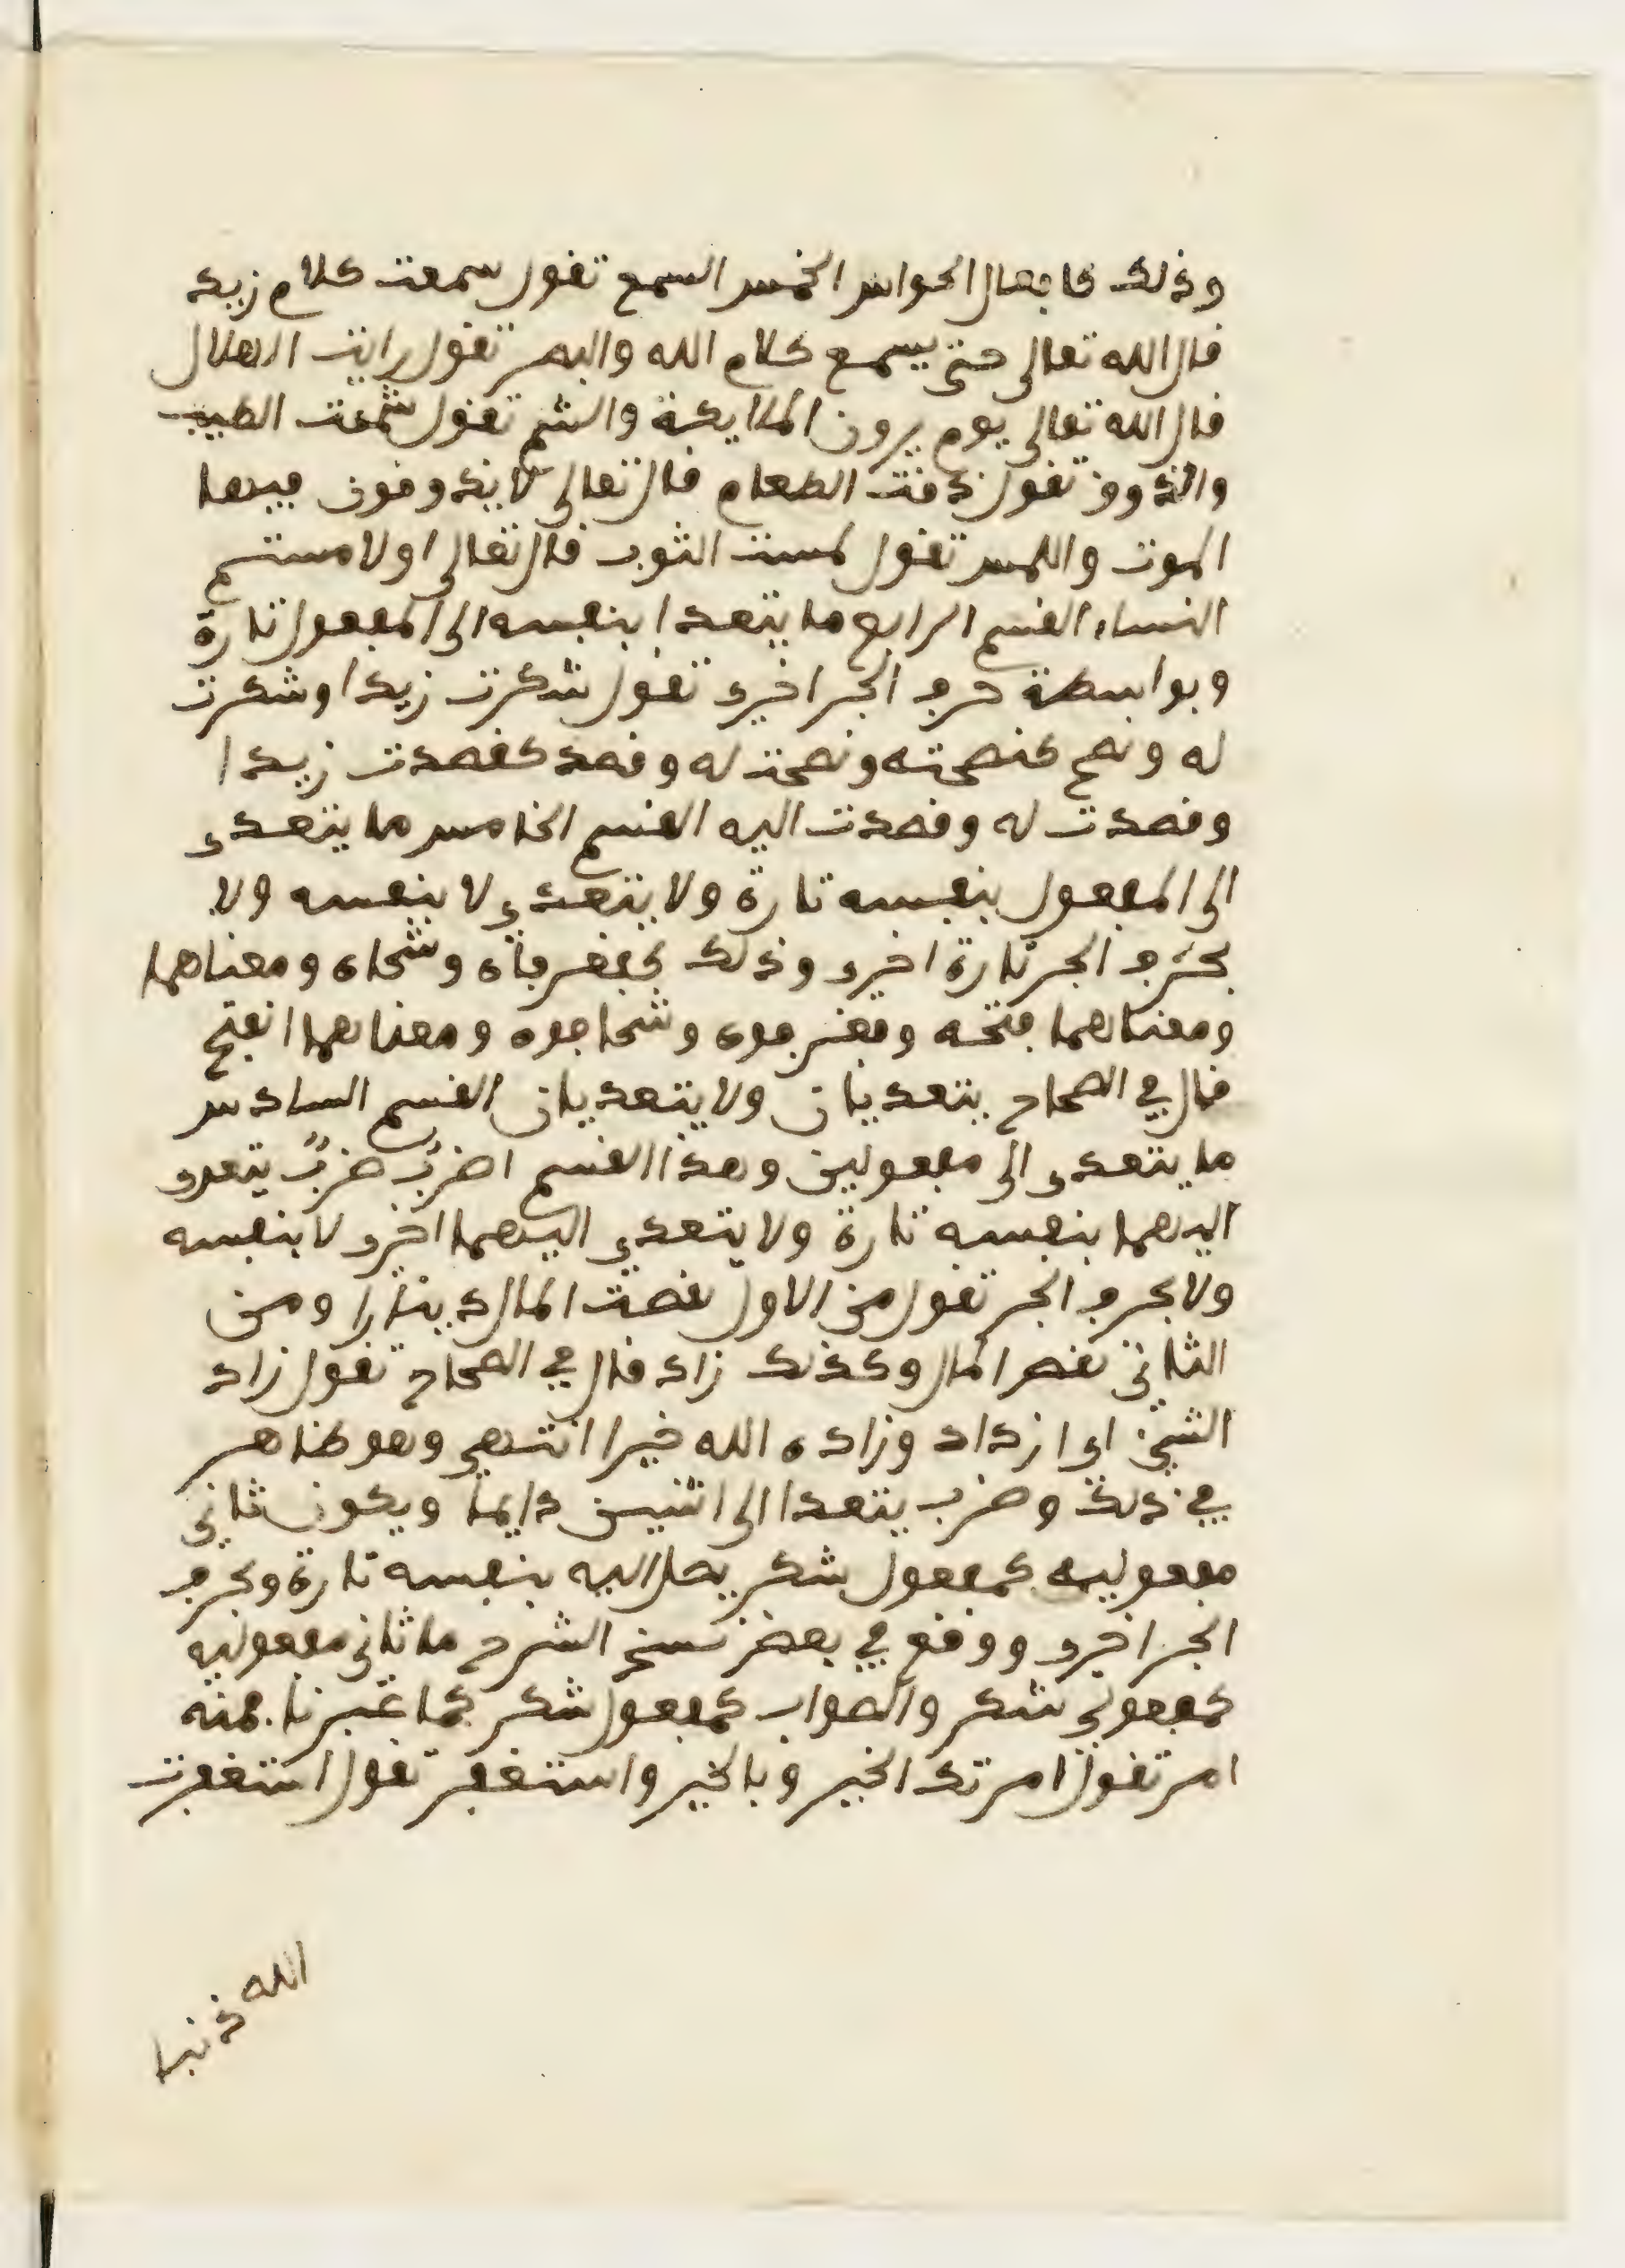 وذلك كافعال الحواس الخمس السمع تقول سمعت كلام زيد
قال الله تعالى حتى يسمع كلام الله والبصر تقول رايت الهلال
قال الله تعالى يوم يرون الملايكة والشم تقول شممت الطيب
والذوق تقول ذقت الطعام قال تعالى لا يذوقون فيها
الموت واللمس تقول لمست الثوب قال تعالى اولامستم
النساء القسم الرابع ما يتعدا بنفسه الى المفعول تارة
وبواسطة حرف الجر اخرى تقول شكرت زيدا وشكرت
له ونصح كنصحته ونصحت له وقصد كقصدت زيدا
وقصدت له وقصدت اليه القسم الخامس ما يتعدى
الى المفعول بنفسه تارة ولا يتعدى لا بنفسه ولا
بحرف الجر تارة اخرى وذلك كفغر فاه وشحاه ومعناهما
ومعناهما فتحه وفغر فوه وشحا فوه ومعناهما انفتح
قال في الصحاح يتعديان ولا يتعديان القسم السادس
ما يتعدى الى مفعولين وهذا القسم اضرب ضرب يتعدى
اليهما بنفسه تارة ولا يتعدى اليهما اخرى لا بنفسه
ولا بحرف الجر تقول من الاول نقصت المال دينارا ومن
الثاني نقص المال وكذلك زاد قال في الصحاح تقول زاد
الشيء اى ازداد وزاده الله خيرا انتهى وهو ظاهر
في ذلك وضرب يتعدا الى اثنين دايما ويكون ثاني
مفعوليه كمفعول شكر يصل اليه بنفسه تارة وبحرف
الجر اخرى ووقع في بعض نسخ الشرح ما ثاني مفعوليه
كمفعولي شكر والصواب كمفعول شكر كما عبرنا فمنه
امر تقول امرتك الخير وبالخير واستغفر تقول استغفرت
الله ذنبا